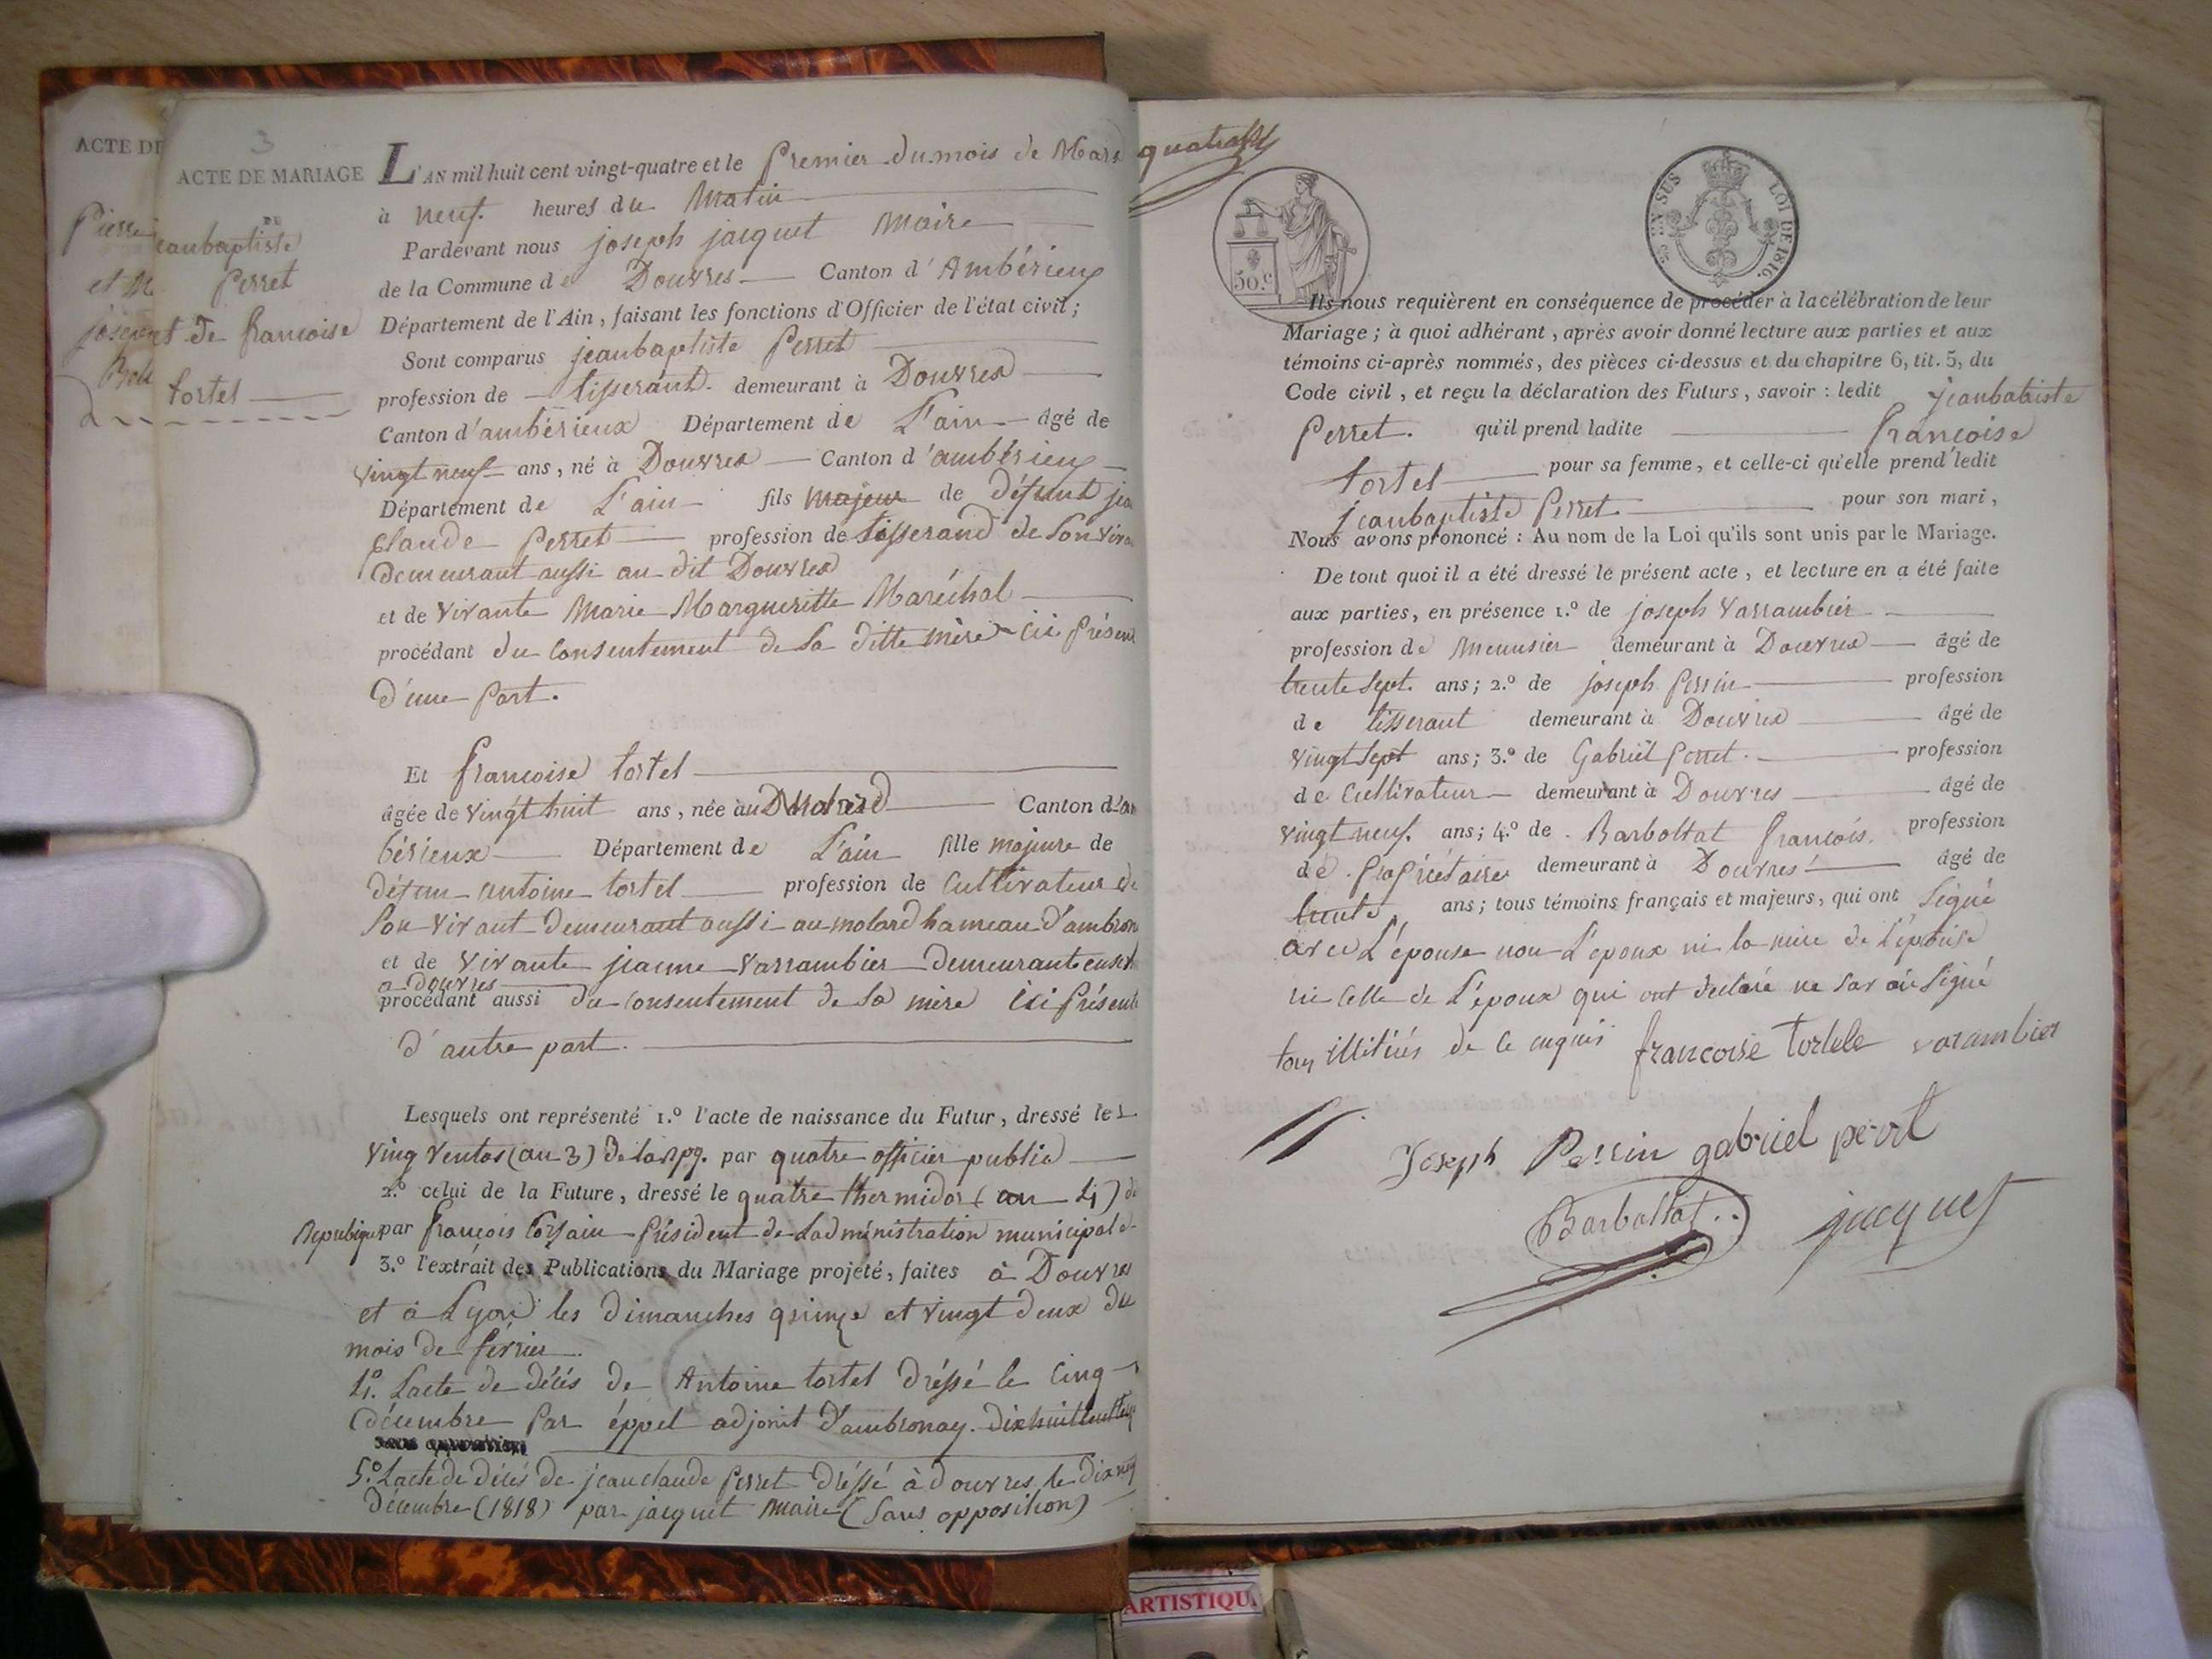 ACTE DE
Pierre
et M
joseph
3
ACTE DE MARIAGE
DE
jeanbaptiste
Perret
et de francoise
tortel
L'AN mil huit cent vingt-quatre et le Premier du mois de Mars
à neuf heures du Matin
Pardevant nous joseph jacquet Maire
de la Commune de Douvres Canton d'Ambérieux
Département de l'Ain, faisant les fonctions d'Officier de l'état civil;
Sont comparus jeanbaptiste Perret
profession de tisserant demeurant à Douvres
Canton d'ambérieux Département de L'ain âgé de
vingt neuf ans, né à Douvres Canton d'ambérieux
Département de L'ain fils majeur de défunt jea
Claude Perret profession de tisserand de son viva
demeurant aussi au dit Douvres
et de vivante Marie Margueritte Maréchal
procédant du consentement de sa ditte mère ici présen
d'une part.
Et francoise tortel
âgée de vingt huit ans, née au Canton d'am
bérieux Département de L'ain fille majeure de
défun antoine tortel profession de Cultivateur de
son vivant demeurant aussi au molard hameau d'ambron
et de vivante jeanne varrambier demeurante
a douvres
procédant aussi du consentement de sa mère ici présente
d'autre part.
Lesquels ont représenté 1.º l'acte de naissance du Futur, dressé le
ving ventos (an 3) par quatre officier public
2.º celui de la Future, dressé le quatre thermidor (an 4) de
Republique par françois président de Ladministration municipale
3.º l'extrait des Publications du Mariage projeté, faites à Douvres
et à Lyon les dimanches quinze et vingt deux du
mois de février
4º. Lacte de décés de Antoine tortel dréssé le Cinq
décembre par éppel adjoint d'ambronay
5.º Lacte de décés de jeanclaude perret dréssé à douvres le dix neuf
décembre (1818) par jacquet maire (sans opposition)
50.c
LOI DE 1816.
EN SUS
Ils nous requièrent en conséquence de procéder à la célébration de leur
Mariage; à quoi adhérant, après avoir donné lecture aux parties et aux
témoins ci-après nommés, des pièces ci-dessus et du chapitre 6, tit. 5, du
Code civil, et reçu la déclaration des Futurs, savoir: ledit jeanbabtiste
Perret. qu'il prend ladite françoise
tortel pour sa femme, et celle-ci qu'elle prend ledit
jeanbaptiste Perret pour son mari,
Nous avons prononcé: Au nom de la Loi qu'ils sont unis par le Mariage.
De tout quoi il a été dressé le présent acte, et lecture en a été faite
aux parties, en présence 1.º de joseph varrambier
profession de Menusier demeurant à Douvres âgé de
trente sept. ans; 2.º de joseph perrin profession
de tisserant demeurant à Douvres âgé de
vingt sept ans; 3.º de Gabriel perret. profession
de Cultivateur demeurant à Douvres âgé de
vingt neuf. ans; 4.º de Barbottat francois. profession
de propriétaire demeurant à Douvres âgé de
trente ans; tous témoins français et majeurs, qui ont signé
avec L'épouse non L'époux ni la mère de l'épouse
ni celle de L'époux qui ont déclaré ne savoir signé
tous de ce enquis francoise tortele varambier
Joseph Perrin gabriel perrt
Barbottat
jacquet
ARTISTIQU